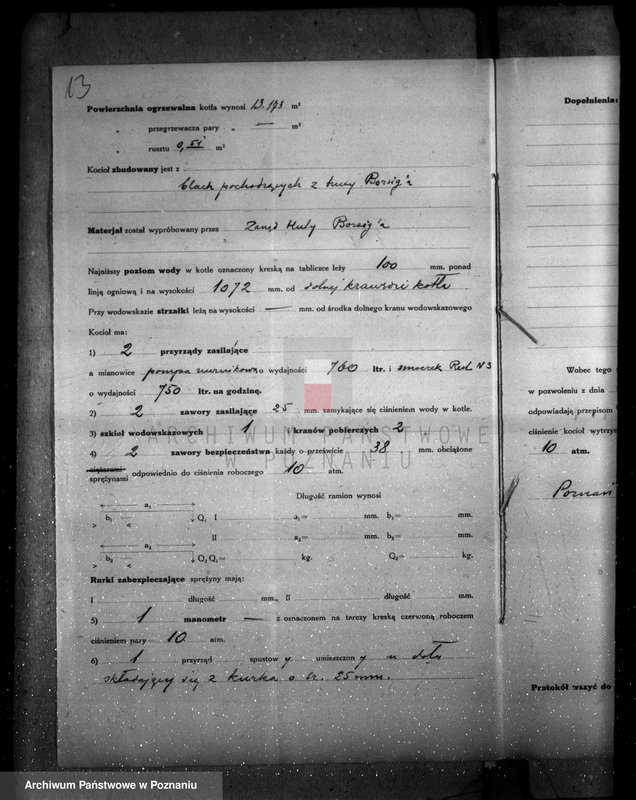 13
Powierzchnia ogrzewalna kotła wynosi 13.173 m²
„ przegrzewacza pary „ — m²
„ rusztu 0,51 m²
Kocioł zbudowany jest z
blach pochodzących z huty Borsig'a
Materjał został wypróbowany przez Zarząd Huty Borsig'a
Najniższy poziom wody w kotle oznaczony kreską na tabliczce leży 100 mm. ponad
linją ogniową i na wysokości 1072 mm. od dolnej krawędzi kotła
Przy wodowskazie strzałki leżą na wysokości — mm. od środka dolnego kranu wodowskazowego
Kocioł ma:
1) 2 przyrządy zasilające
a mianowicie pompa nurnikowa o wydajności 760 ltr. i smoczek Rest. N 3
o wydajności 750 ltr. na godzinę.
2) 2 zawory zasilające 25 mm. zamykające się ciśnieniem wody w kotle.
3) szkieł wodowskazowych 1 i kranów pobierczych 2
4) 2 zawory bezpieczeństwa każdy o prześwicie 38 mm. obciążone
ciężarami
sprężynami odpowiednio do ciśnienia roboczego 10 atm.
Długość ramion wynosi
a₁
b₁ Q₁ I a₁= mm. b₁= mm.
II a₂= mm. b₂= mm.
a₂
b₂ Q₂ Q₁= kg. Q₂= kg.
Rurki zabezpieczające sprężyny mają:
I długość mm., II długość mm.
5) 1 manometr — z oznaczonem na tarczy kreską czerwoną roboczem
ciśnieniem pary 10 atm.
6) 1 przyrząd spustowy umieszczony u dołu
składający się z kurka o śr. 25 mm.
Dopełnienia:
Wobec tego
w pozwoleniu z dnia
odpowiadają przepisom
ciśnienie kocioł wytrzym
10 atm.
Poznań
Protokół wszyć do
ARCHIWUM PAŃSTWOWE
W POZNANIU
Archiwum Państwowe w Poznaniu